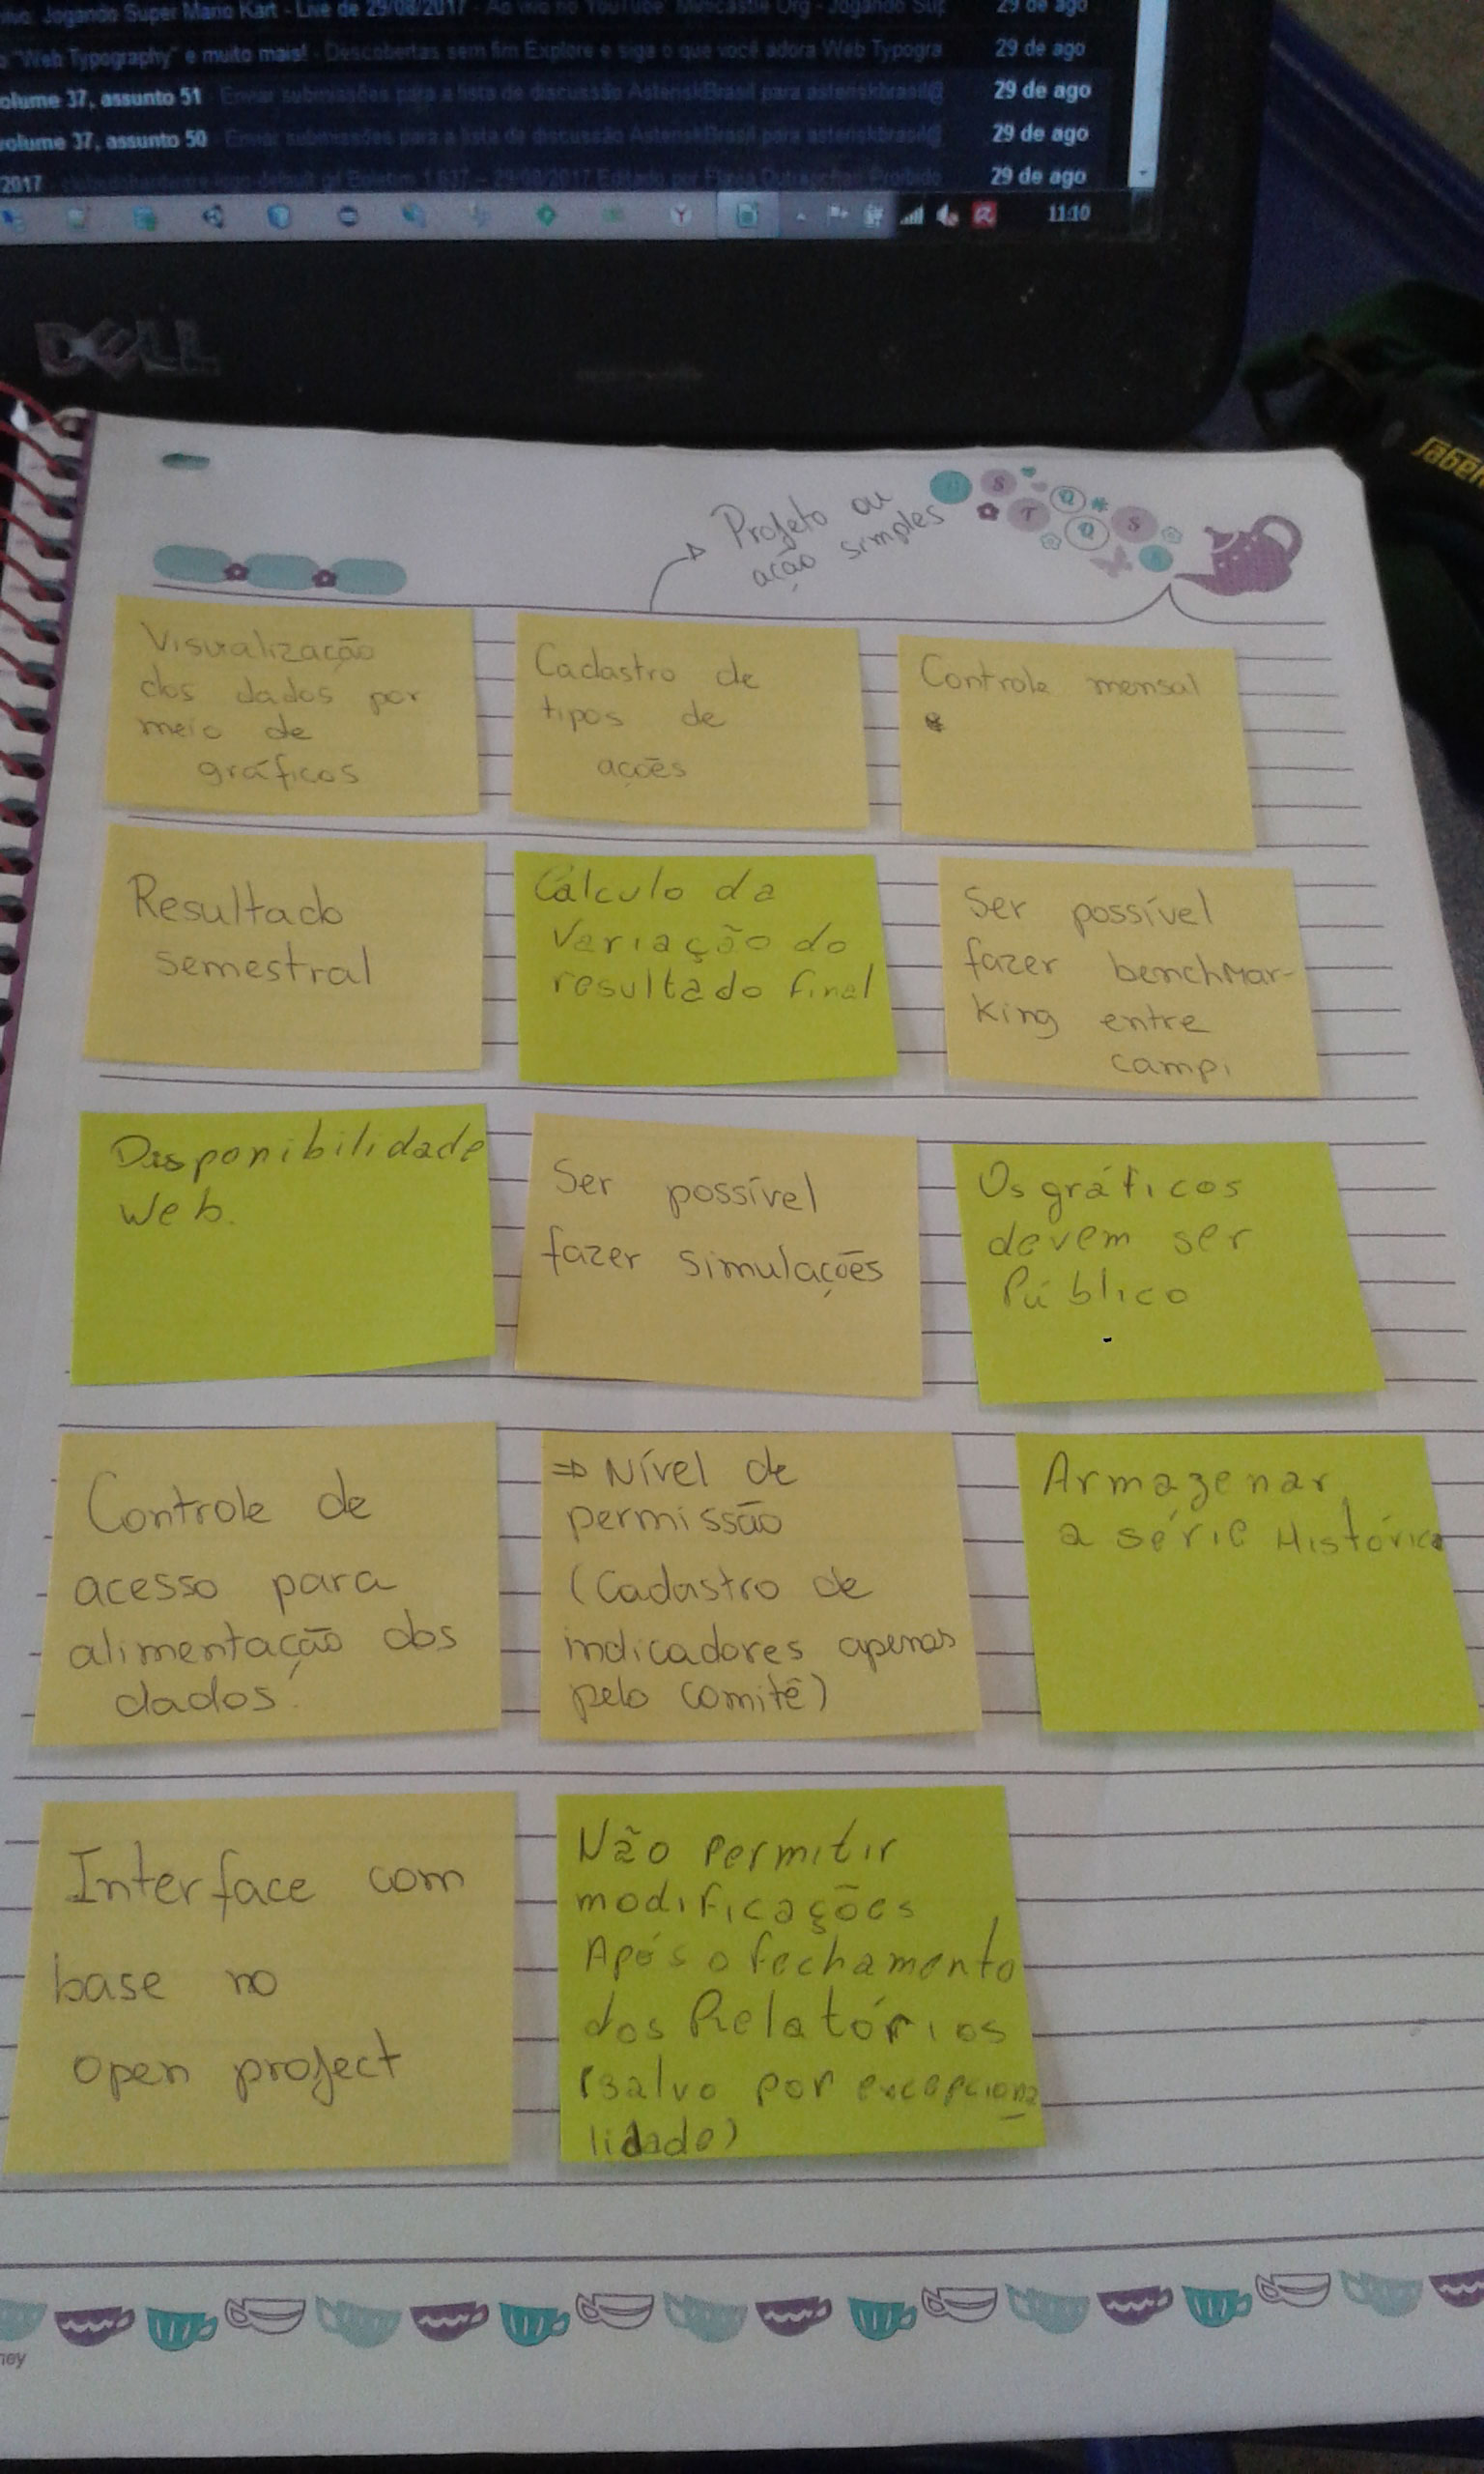 Jogando Super Mario Kart - Live de 29/08/2017 - Ao vivo no YouTube Minicastle Org - Jogando Sup 29 de ago
"Web Typography" e muito mais! - Descobertas sem fim Explore e siga o que você adora Web Typogra 29 de ago
olume 37, assunto 51 - Enviar submissões para a lista de discussão AsteriskBrasil para asteriskbrasil@ 29 de ago
volume 37, assunto 50 - Enviar submissões para a lista de discussão AsteriskBrasil para asteriskbrasil@ 29 de ago
2017 29/08/2017 Editado por 29 de ago
11:10
DELL
Projeto ou
ação simples
S
T
Q
Q
S
Visualização
dos dados por
meio de
gráficos
Cadastro de
tipos de
ações
Controle mensal
Resultado
semestral
Cálculo da
Variação do
resultado final
Ser possível
fazer benchmar-
king entre
campi
Disponibilidade
Web.
Ser possível
fazer simulações
Os gráficos
devem ser
Público
Controle de
acesso para
alimentação dos
dados.
⇒ Nível de
permissão
(Cadastro de
indicadores apenas
pelo comitê)
Armazenar
a série Histórica
Interface com
base no
open project
Não permitir
modificações
Após o fechamento
dos Relatórios
(salvo por excepciona
lidade)
ney